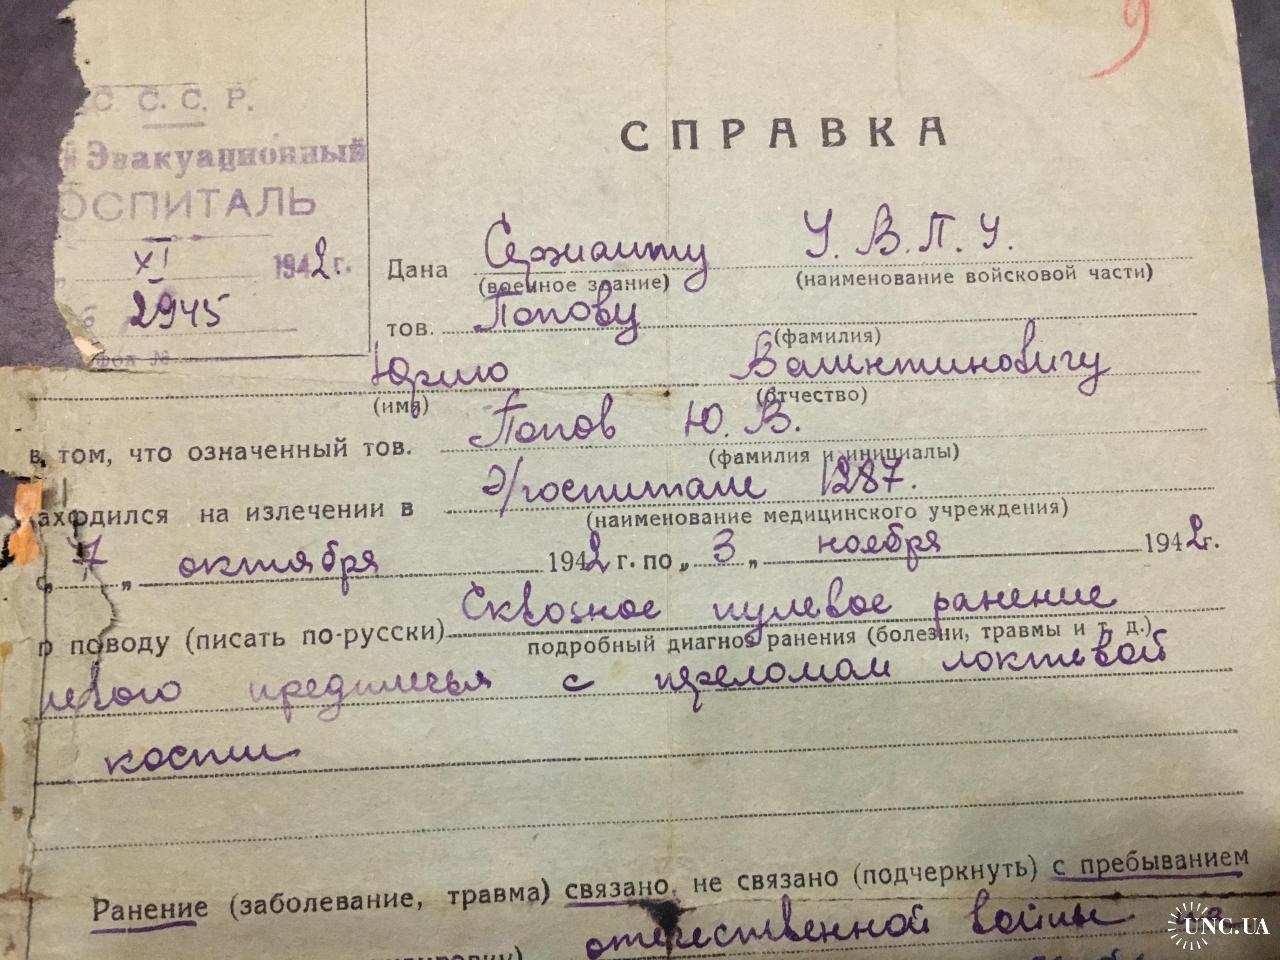 9
С. С. С. Р.
й Эвакуационный
ОСПИТАЛЬ
XI 1942 г.
2945
СПРАВКА
Дана Сержанту У. В. П. У.
(военное звание) (наименование войсковой части)
тов. Попову
(фамилия)
Юрию Валентиновичу
(имя) (отчество)
в том, что означенный тов. Попов Ю. В.
(фамилия и инициалы)
аходился на излечении в Э/госпитале 1287.
(наименование медицинского учреждения)
с „ 7 „ октября 1942 г. по „ 3 „ ноября 1942 г.
п поводу (писать по-русски) Сквозное пулевое ранение
подробный диагноз ранения (болезни, травмы и т. д.)
левого предплечья с переломом локтевой
кости
Ранение (заболевание, травма) связано, не связано (подчеркнуть) с пребыванием
отечественной войны на
UNC.UA